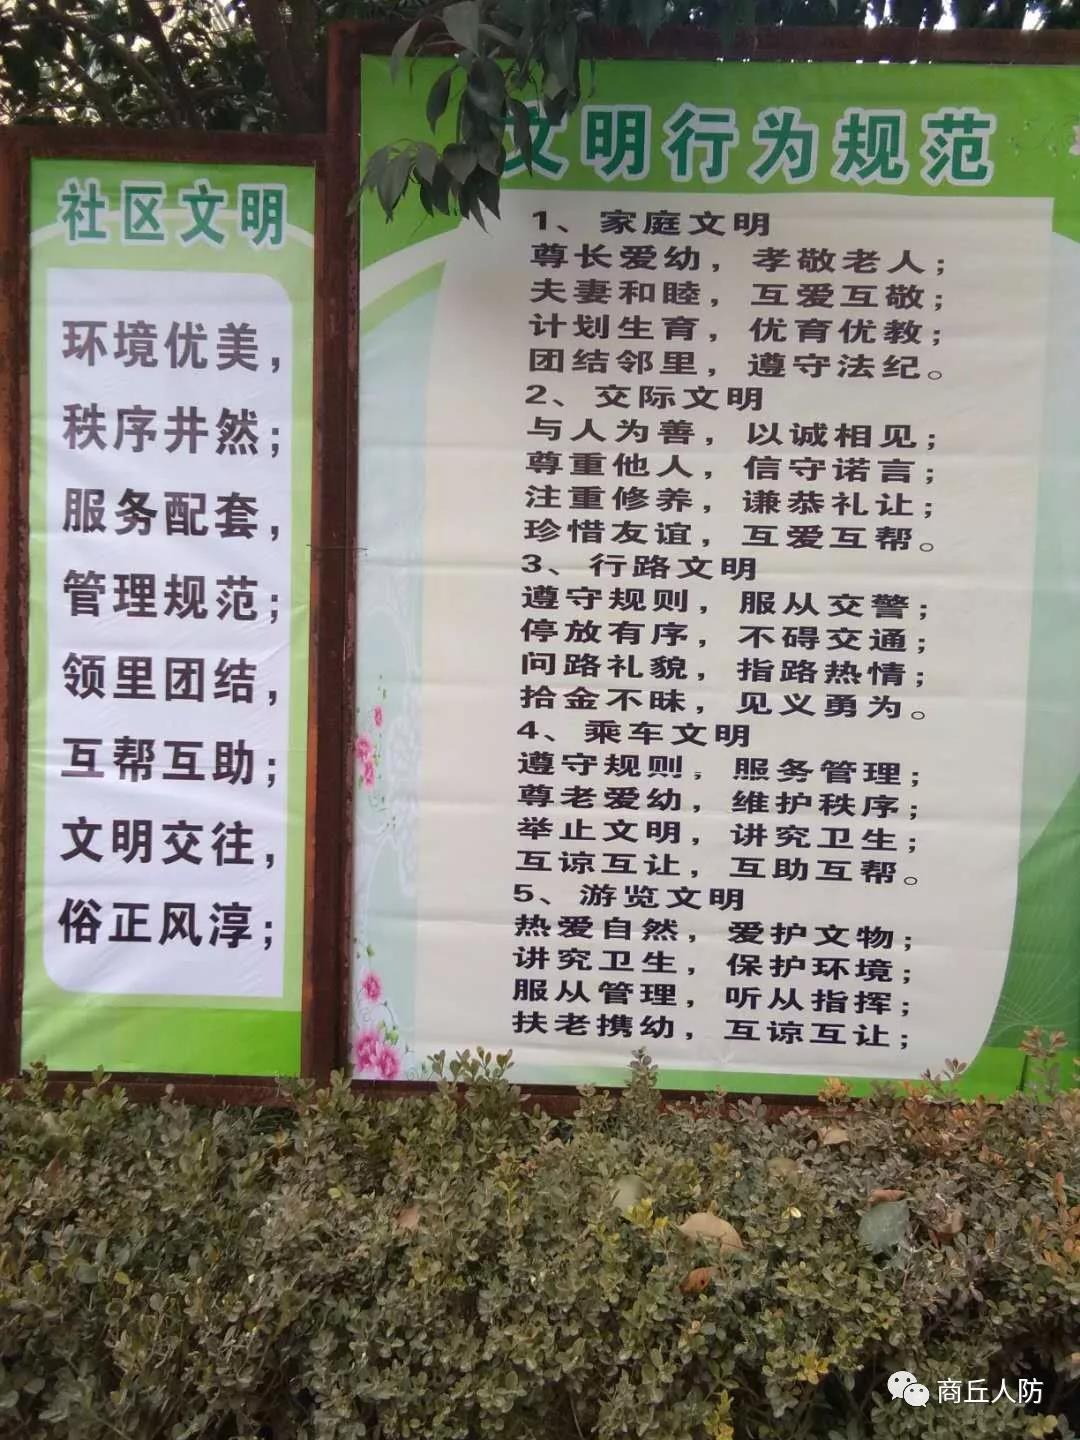 社区文明
环境优美，
秩序井然；
服务配套，
管理规范；
领里团结，
互帮互助；
文明交往，
俗正风淳；
文明行为规范
1、家庭文明
尊长爱幼，孝敬老人；
夫妻和睦，互爱互敬；
计划生育，优育优教；
团结邻里，遵守法纪。
2、交际文明
与人为善，以诚相见；
尊重他人，信守诺言；
注重修养，谦恭礼让；
珍惜友谊，互爱互帮。
3、行路文明
遵守规则，服从交警；
停放有序，不碍交通；
问路礼貌，指路热情；
拾金不昧，见义勇为。
4、乘车文明
遵守规则，服务管理；
尊老爱幼，维护秩序；
举止文明，讲究卫生；
互谅互让，互助互帮。
5、游览文明
热爱自然，爱护文物；
讲究卫生，保护环境；
服从管理，听从指挥；
扶老携幼，互谅互让；
商丘人防